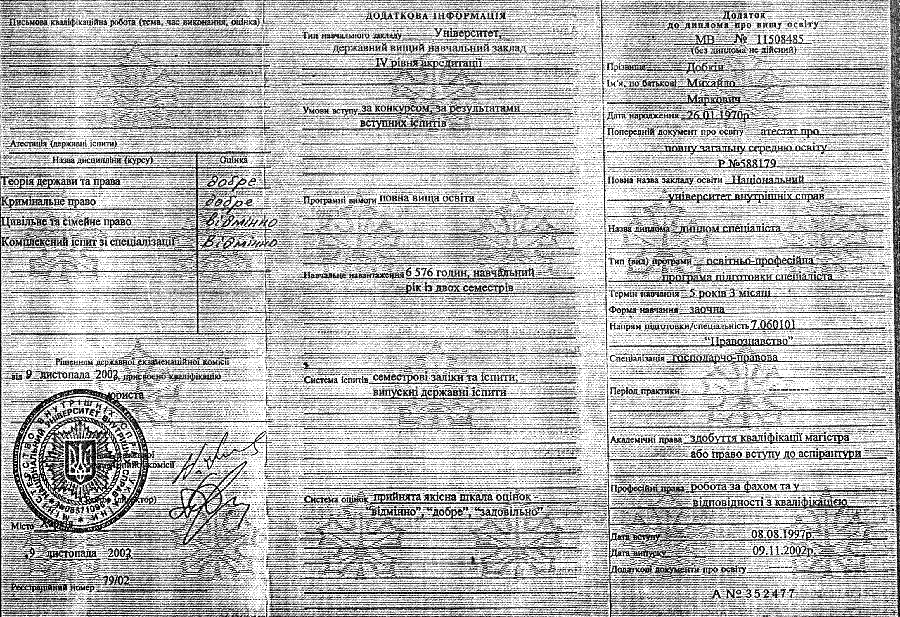 Письмова кваліфікаційна робота (тема, час виконання, оцінка)
Атестація (державні іспити)
Назва дисципліни (курсу) Оцінка
Теорія держави та права добре
Кримінальне право добре
Цивільне та сімейне право відмінно
Комплексний іспит зі спеціалізації відмінно
Рішенням державної екзаменаційної комісії
від 9 листопада 2002, присвоєно кваліфікацію
юриста
комісії
Місто
9 листопада 2002
Реєстраційний номер 79/02
ДОДАТКОВА ІНФОРМАЦІЯ
Тип навчального закладу Університет,
державний вищий навчальний заклад
IV рівня акредитації
Умови вступу за конкурсом, за результатами
вступних іспитів
Програмні вимоги повна вища освіта
Навчальне навантаження 6 576 годин, навчальний
рік із двох семестрів
Система іспитів семестрові заліки та іспити,
випускні державні іспити
Система оцінок прийнята якісна шкала оцінок -
"відмінно", "добре", "задовільно"
Додаток
до диплома про вищу освіту
МВ № 11508485
(без диплома не дійсний)
Прізвище Добкін
Ім'я, по батькові Михайло
Маркович
Дата народження 26.01.1970р
Попередній документ про освіту атестат про
повну загальну середню освіту
Р №588179
Повна назва закладу освіти Національний
університет внутрішніх справ
Назва диплома диплом спеціаліста
Тип (вид) програми освітньо-професійна
програма підготовки спеціаліста
Термін навчання 5 років 3 місяці
Форма навчання заочна
Напрям підготовки/спеціальність 7.060101
"Правознавство"
Спеціалізація господарчо-правова
Період практики ---------
Академічні права здобуття кваліфікації магістра
або право вступу до аспірантури
Професійні права робота за фахом та у
відповідності з кваліфікацією
Дата вступу 08.08.1997р.
Дата випуску 09.11.2002р.
Додаткові документи про освіту
А № 352477